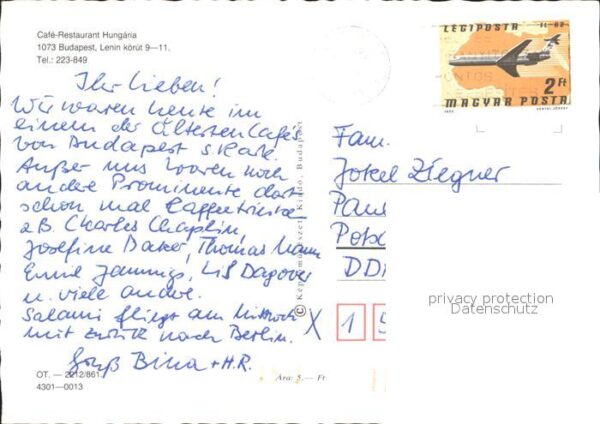 Café-Restaurant Hungária
1073 Budapest, Lenin körút 9—11.
Tel.: 223-849
Ihr Lieben!
Wir waren heute in
einem der ältesten Cafés
von Budapest s. Karte.
Außer uns waren noch
andere Prominente dort
schon mal Kaffeetrinken
z.B. Charles Chaplin,
Josefine Baker, Thomas Mann
Emil Jannings, Lil Dagover
u. viele andre.
Salami fliegt am Mittwoch
mit zurück nach Berlin.
Gruß Bina + H.R.
OT. — 2212/861.
4301—0013
© Képzőművészeti Kiadó, Budapest
Ára: 5.— Ft
LÉGIPOSTA
2 Ft
MAGYAR POSTA
Fam.
Jokel Ziegner
DD
X 1 5
privacy protection
Datenschutz